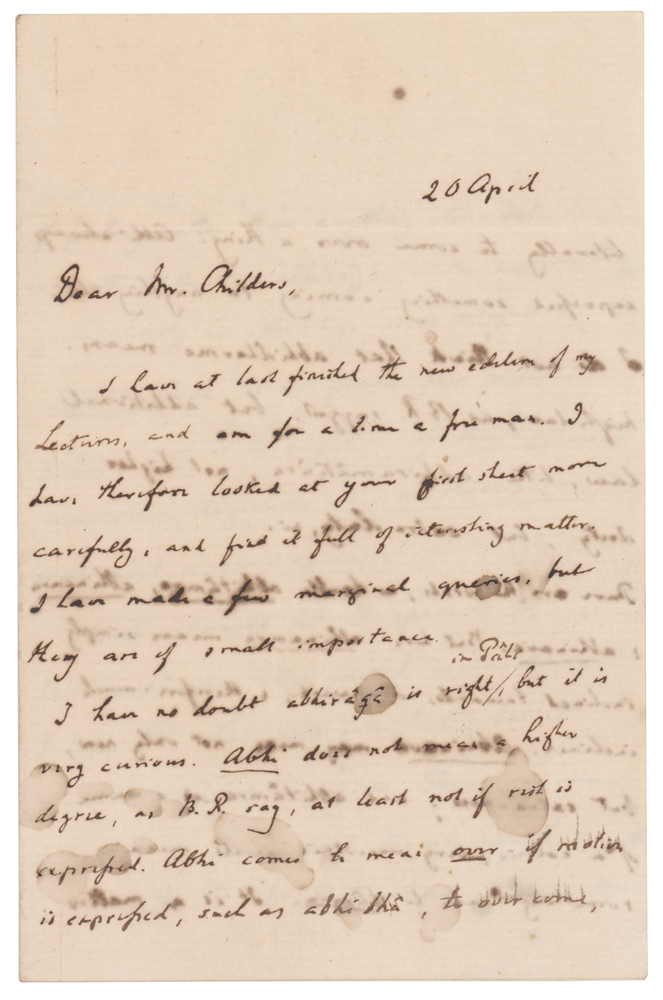 20 April
Dear Mr. Childers,
I have at last finished the new edition of my
Lectures, and am for a time a free man. I
have therefore looked at your first sheet more
carefully, and find it full of interesting matter.
I have made a few marginal queries, but
they are of small importance.
in Pâli
I have no doubt abhirâgâ is right, but it is
very curious. Abhi does not mean a higher
degree, as B. R. say, at least not if rest is
expressed. Abhi comes to mean over if motion
is expressed, such as abhi bhû, to overcome,